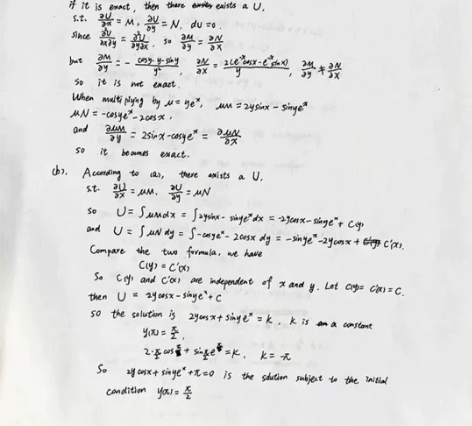 if it is exact, then there exists a U,
s.t. ∂U/∂x = M, ∂U/∂y = N, du = 0.
since ∂²U/∂x∂y = ∂²U/∂y∂x, so ∂M/∂y = ∂N/∂x
but ∂M/∂y = - (cosy·y-siny)/y², ∂N/∂x = 2(e⁻ˣcosx-e⁻ˣsinx)/y, ∂M/∂y ≠ ∂N/∂x
so it is not exact.
When multiplying by μ = yeˣ, μM = 2ysinx - sinyeˣ
μN = -cosyeˣ - 2cosx,
and ∂μM/∂y = 2sinx - cosyeˣ = ∂μN/∂x
so it becomes exact.
(b). According to (a), there exists a U.
s.t. ∂U/∂x = μM. ∂U/∂y = μN
so U = ∫μMdx = ∫2ysinx - sinyeˣ dx = -2ycosx - sinyeˣ + C(y)
and U = ∫μN dy = ∫-cosyeˣ - 2cosx dy = -sinyeˣ - 2ycosx + C'(x).
Compare the two formula, we have
C(y) = C'(x)
So C(y) and C'(x) are independent of x and y. Let C(y) = C'(x) = C.
then U = 2ycosx - sinyeˣ + C
so the solution is 2ycosx + sinyeˣ = k, k is a constant
y(π) = π/2
2·π/2 cosπ + sinπ/2 e = k, k = -π
So 2ycosx + sinyeˣ + π = 0 is the solution subject to the initial
condition = π/2